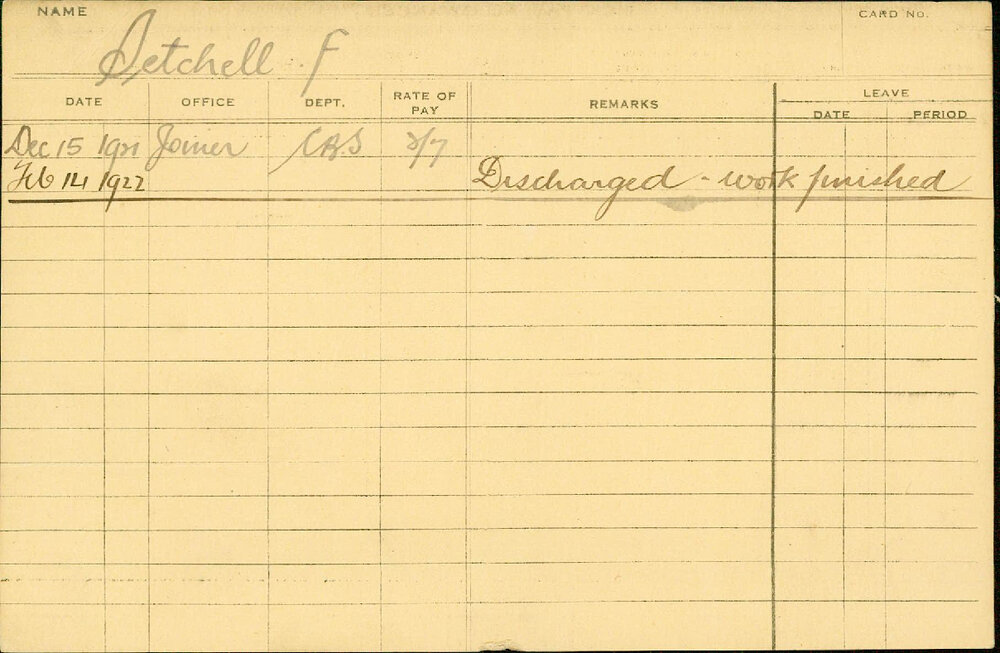 NAME
CARD NO.
Setchell . F
DATE OFFICE DEPT. RATE OF PAY REMARKS LEAVE
DATE PERIOD
Dec 15 1921 Joiner CRS 2/7
Feb 14 1922 Discharged - work finished